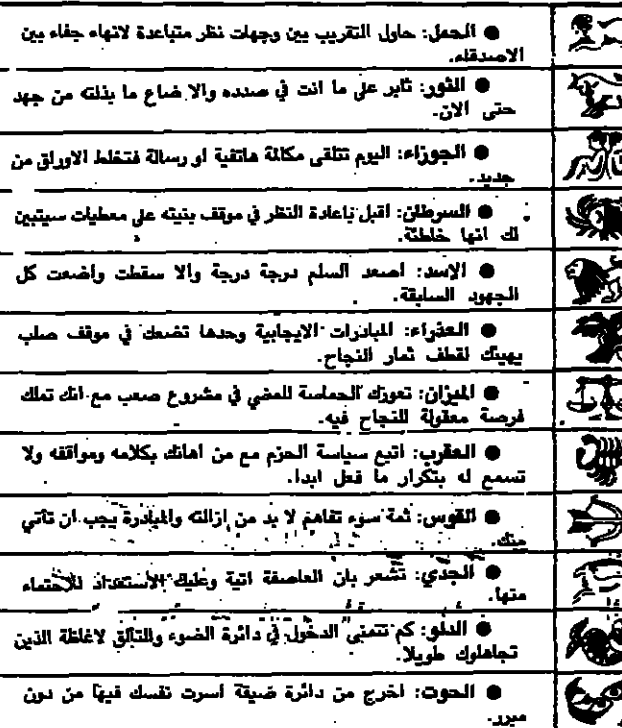 ● الحمل: حاول التقريب بين وجهات نظر متباعدة لانهاء جفاء بين
الاصدقاء.
● الثور: ثابر على ما انت في صدده والا ضاع ما بذلته من جهد
حتى الان.
● الجوزاء: اليوم تتلقى مكالمة هاتفية او رسالة فتختلط الاوراق من
جديد.
● السرطان: اقبل باعادة النظر في موقف بنيته على معطيات سيتبين
لك انها خاطئة.
● الاسد: اصعد السلم درجة درجة والا سقطت واضعت كل
الجهود السابقة.
● العذراء: المبادرات الايجابية وحدها تضعك في موقف صلب
يهيئك لقطف ثمار النجاح.
● الميزان: تعوزك الحماسة للمضي في مشروع صعب مع انك تملك
فرصة معقولة للنجاح فيه.
● العقرب: اتبع سياسة الحزم مع من اهانك بكلامه ومواقفه ولا
تسمح له بتكرار ما فعل ابدا.
● القوس: ثمة سوء تفاهم لا بد من إزالته والمبادرة يجب ان تأتي
منك.
● الجدي: تشعر بان العاصفة اتية وعليك الاستعداد للاحتماء
منها.
● الدلو: كم تتمنى الدخول في دائرة الضوء والتألق لاغاظة الذين
تجاهلوك طويلا.
● الحوت: اخرج من دائرة ضيقة اسرت نفسك فيها من دون
مبرر.